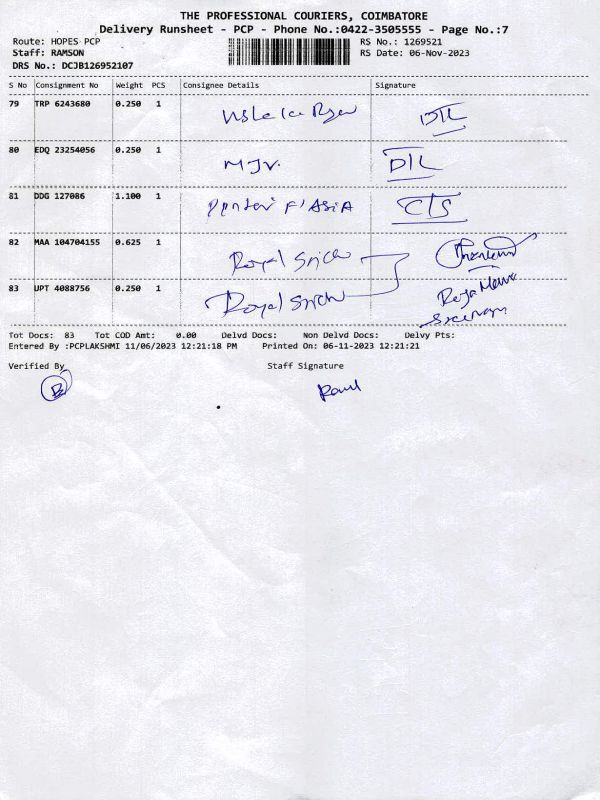 THE PROFESSIONAL COURIERS, COIMBATORE
Delivery Runsheet - PCP - Phone No.:0422-3505555 - Page No.:7
Route: HOPES PCP RS No.: 1269521
Staff: RAMSON RS Date: 06-Nov-2023
DRS No.: DCJB126952107
S No Consignment No Weight PCS Consignee Details Signature
79 TRP 6243680 0.250 1
80 EDQ 23254056 0.250 1 MJV. DTL
81 DDG 127086 1.100 1 F'ASIA CTS
82 MAA 104704155 0.625 1 Royal
83 UPT 4088756 0.250 1 Royal
Tot Docs: 83 Tot COD Amt: 0.00 Delvd Docs: Non Delvd Docs: Delvy Pts:
Entered By :PCPLAKSHMI 11/06/2023 12:21:18 PM Printed On: 06-11-2023 12:21:21
Verified By Staff Signature